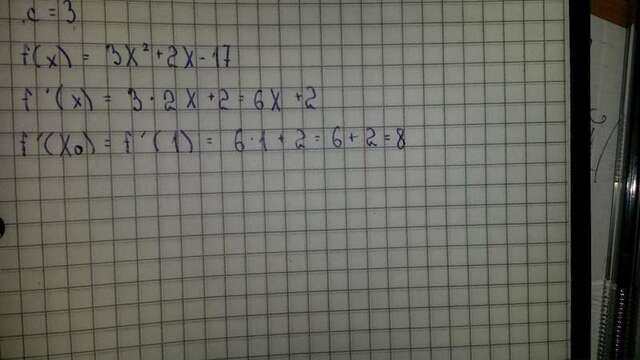 c = 3
f(x) = 3x² + 2x - 17
f'(x) = 3 · 2x + 2 = 6x + 2
f'(x₀) = f'(1) = 6 · 1 + 2 = 6 + 2 = 8